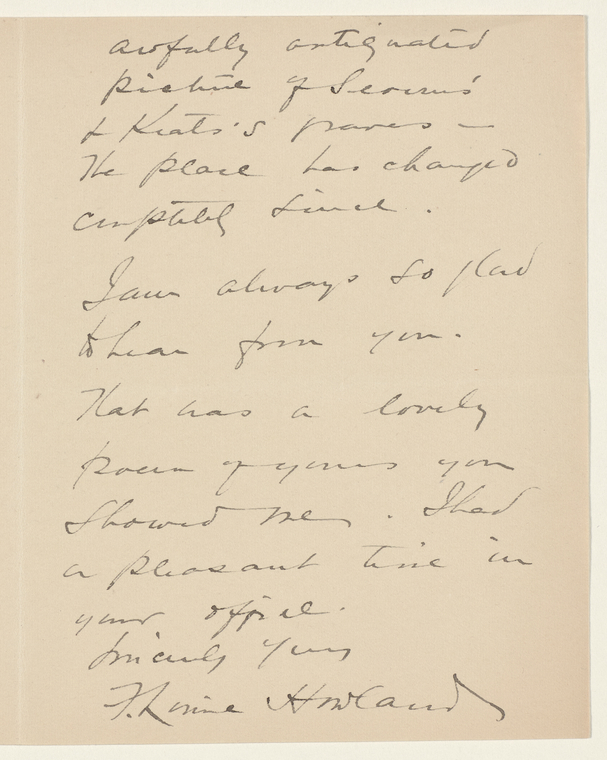 awfully antiquated
picture of Severn's
& Keats's graves —
The place has changed
completely since.
I am always so glad
to hear from you.
That was a lovely
poem of yours you
showed me. I had
a pleasant time in
your office.
Sincerely Yours
Howland